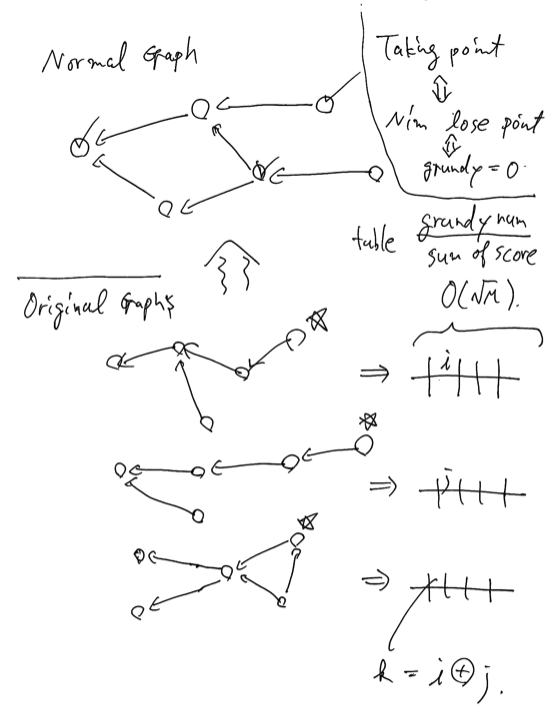 Normal Graph
Taking point
⇕
Nim lose point
⇕
grundy = 0.
table grundy num
sum of score
O(√M).
Original Graphs
⇒ i
⇒ j
⇒
k = i ⊕ j.